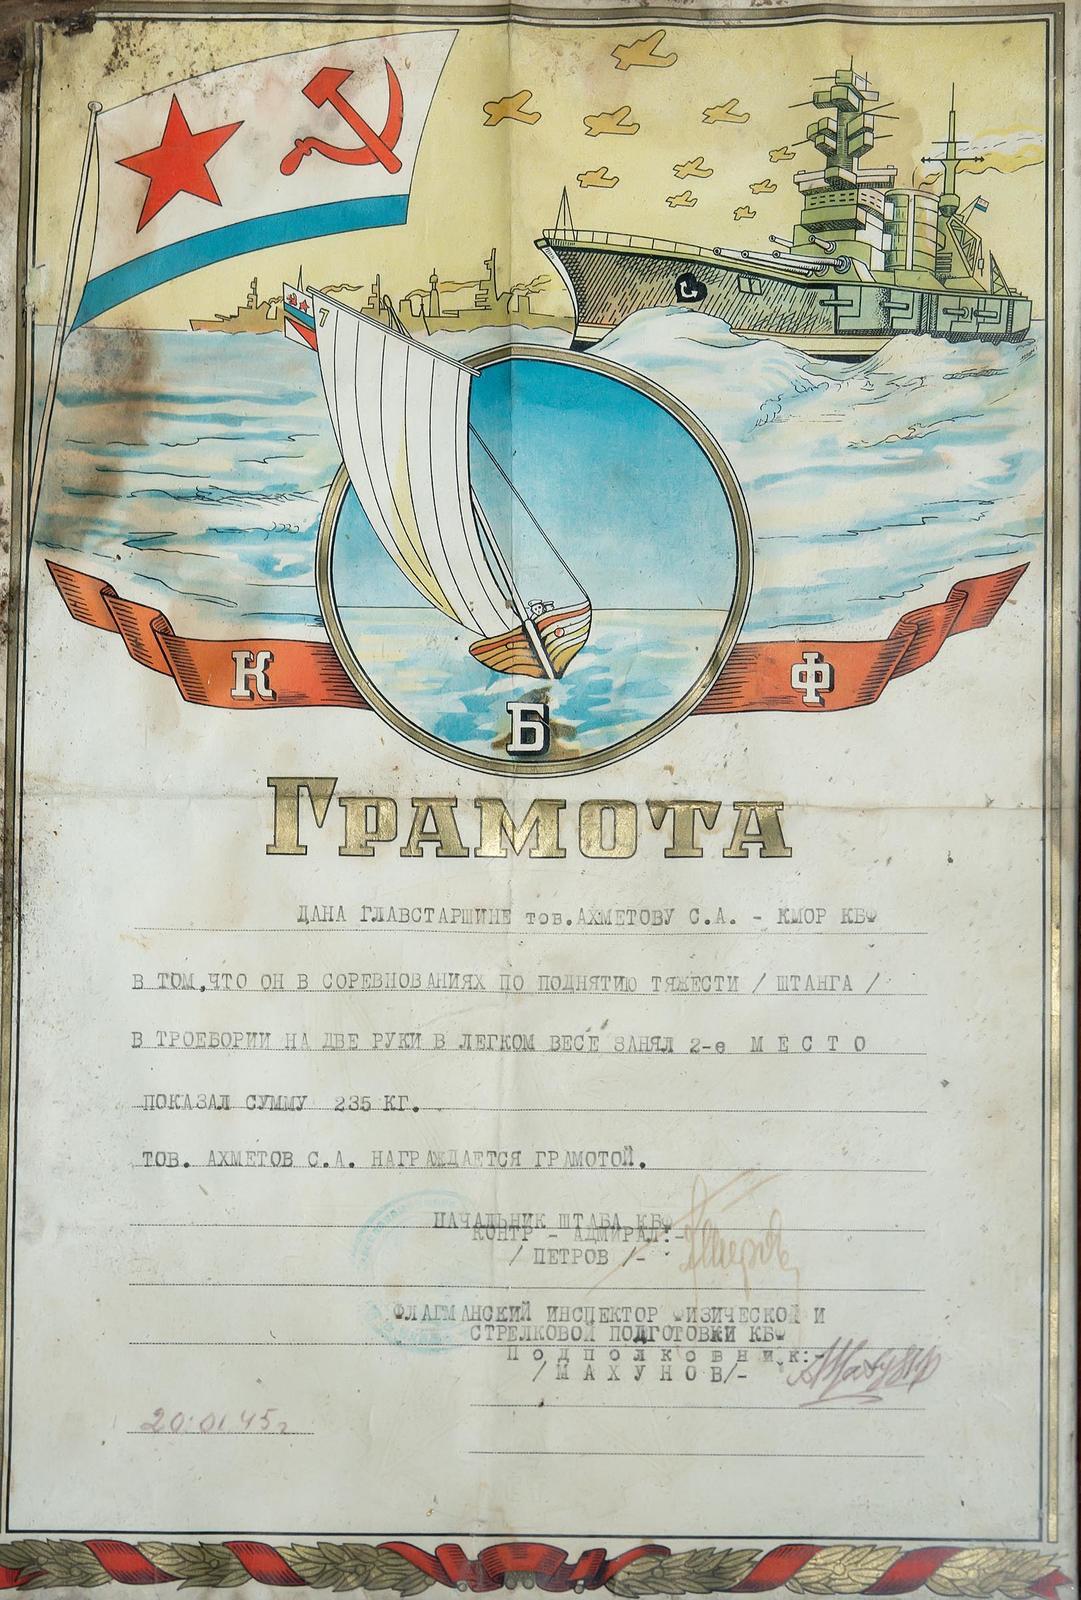 7
К Б Ф
ГРАМОТА
ДАНА ГЛАВСТАРШИНЕ тов.АХМЕТОВУ С.А. - КМОР КБФ
В ТОМ,ЧТО ОН В СОРЕВНОВАНИЯХ ПО ПОДНЯТИЮ ТЯЖЕСТИ / ШТАНГА /
В ТРОЕБОРИИ НА ДВЕ РУКИ В ЛЕГКОМ ВЕСЕ ЗАНЯЛ 2-е М Е С Т О
ПОКАЗАЛ СУММУ 235 КГ.
ТОВ. АХМЕТОВ С.А. НАГРАЖДАЕТСЯ ГРАМОТОЙ.
НАЧАЛЬНИК ШТАБА КБФ
КОНТР - АДМИРАЛ:-
/ ПЕТРОВ /-
ФЛАГМАНСКИЙ ИНСПЕКТОР ФИЗИЧЕСКОЙ И
СТРЕЛКОВОЙ ПОДГОТОВКИ КБФ
П о д п о л к о в н и к:-
/ М А Х У Н О В/-
20.01.45г